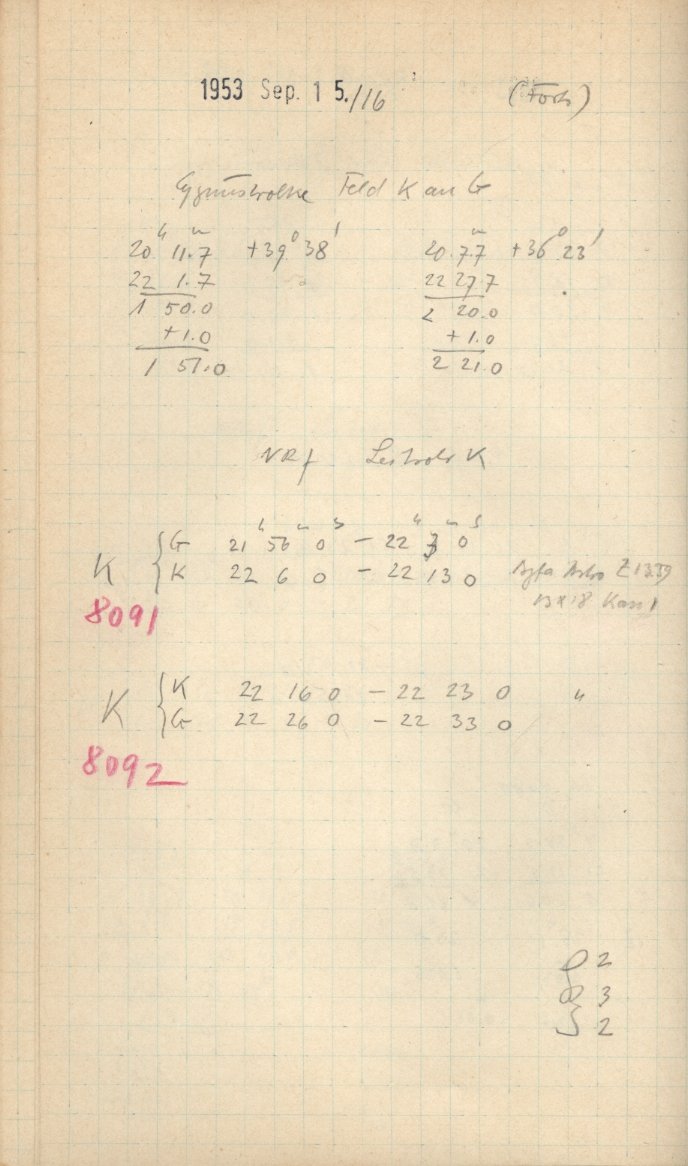 1953 Sep. 15./16 (Forts)
Cygnuswolke Feld K an G
20 h 11. m 7 +39° 38' 20. 7. m 7 +36° 23'
22 1.7 22 27.7
1 50.0 2 20.0
+1.0 +1.0
1 51.0 2 21.0
K
K { G 21 h 56 m 0 s – 22 h 3 m 0 s
K 22 6 0 – 22 13 0 Agfa Astro Z 1339
8091 13×18
K { K 22 16 0 – 22 23 0 "
G 22 26 0 – 22 33 0
8092
2
3
2